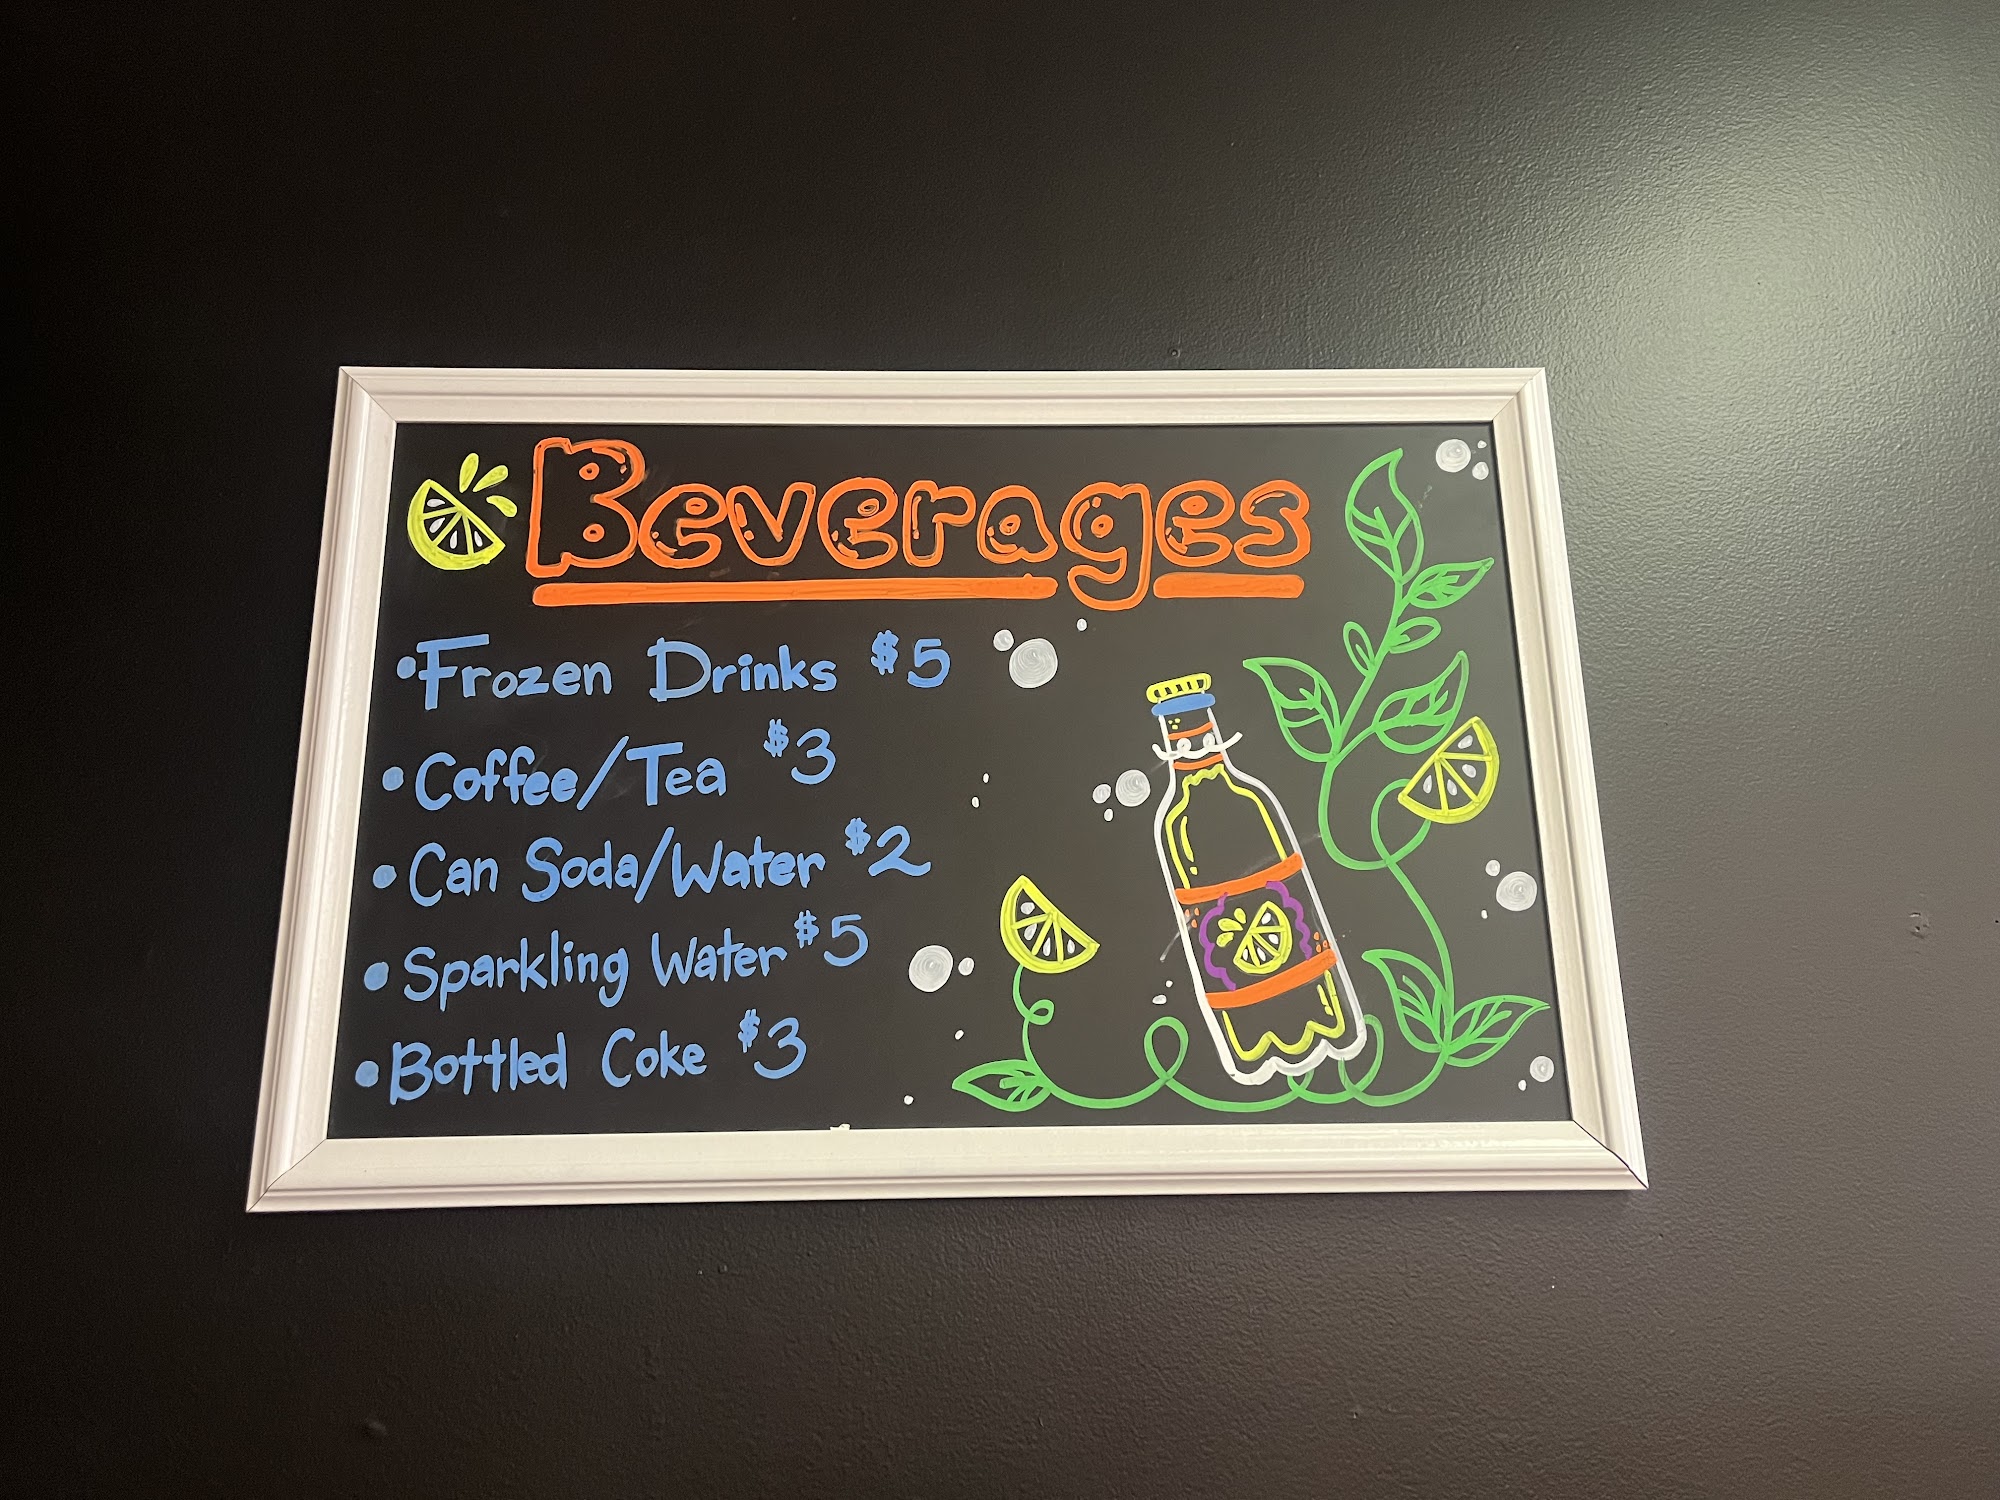 Beverages
•Frozen Drinks $5
•Coffee/Tea $3
•Can Soda/Water $2
•Sparkling Water $5
•Bottled Coke $3